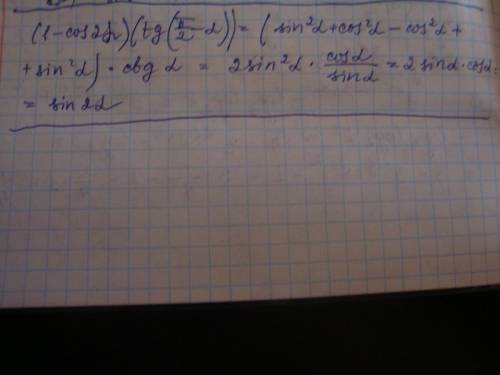 (1-cos2α)(tg(π/2-α))=(sin²α+cos²α-cos²α+
+sin²α)·ctg α = 2sin²α · cosα/sinα = 2sinα·cosα
= sin2α